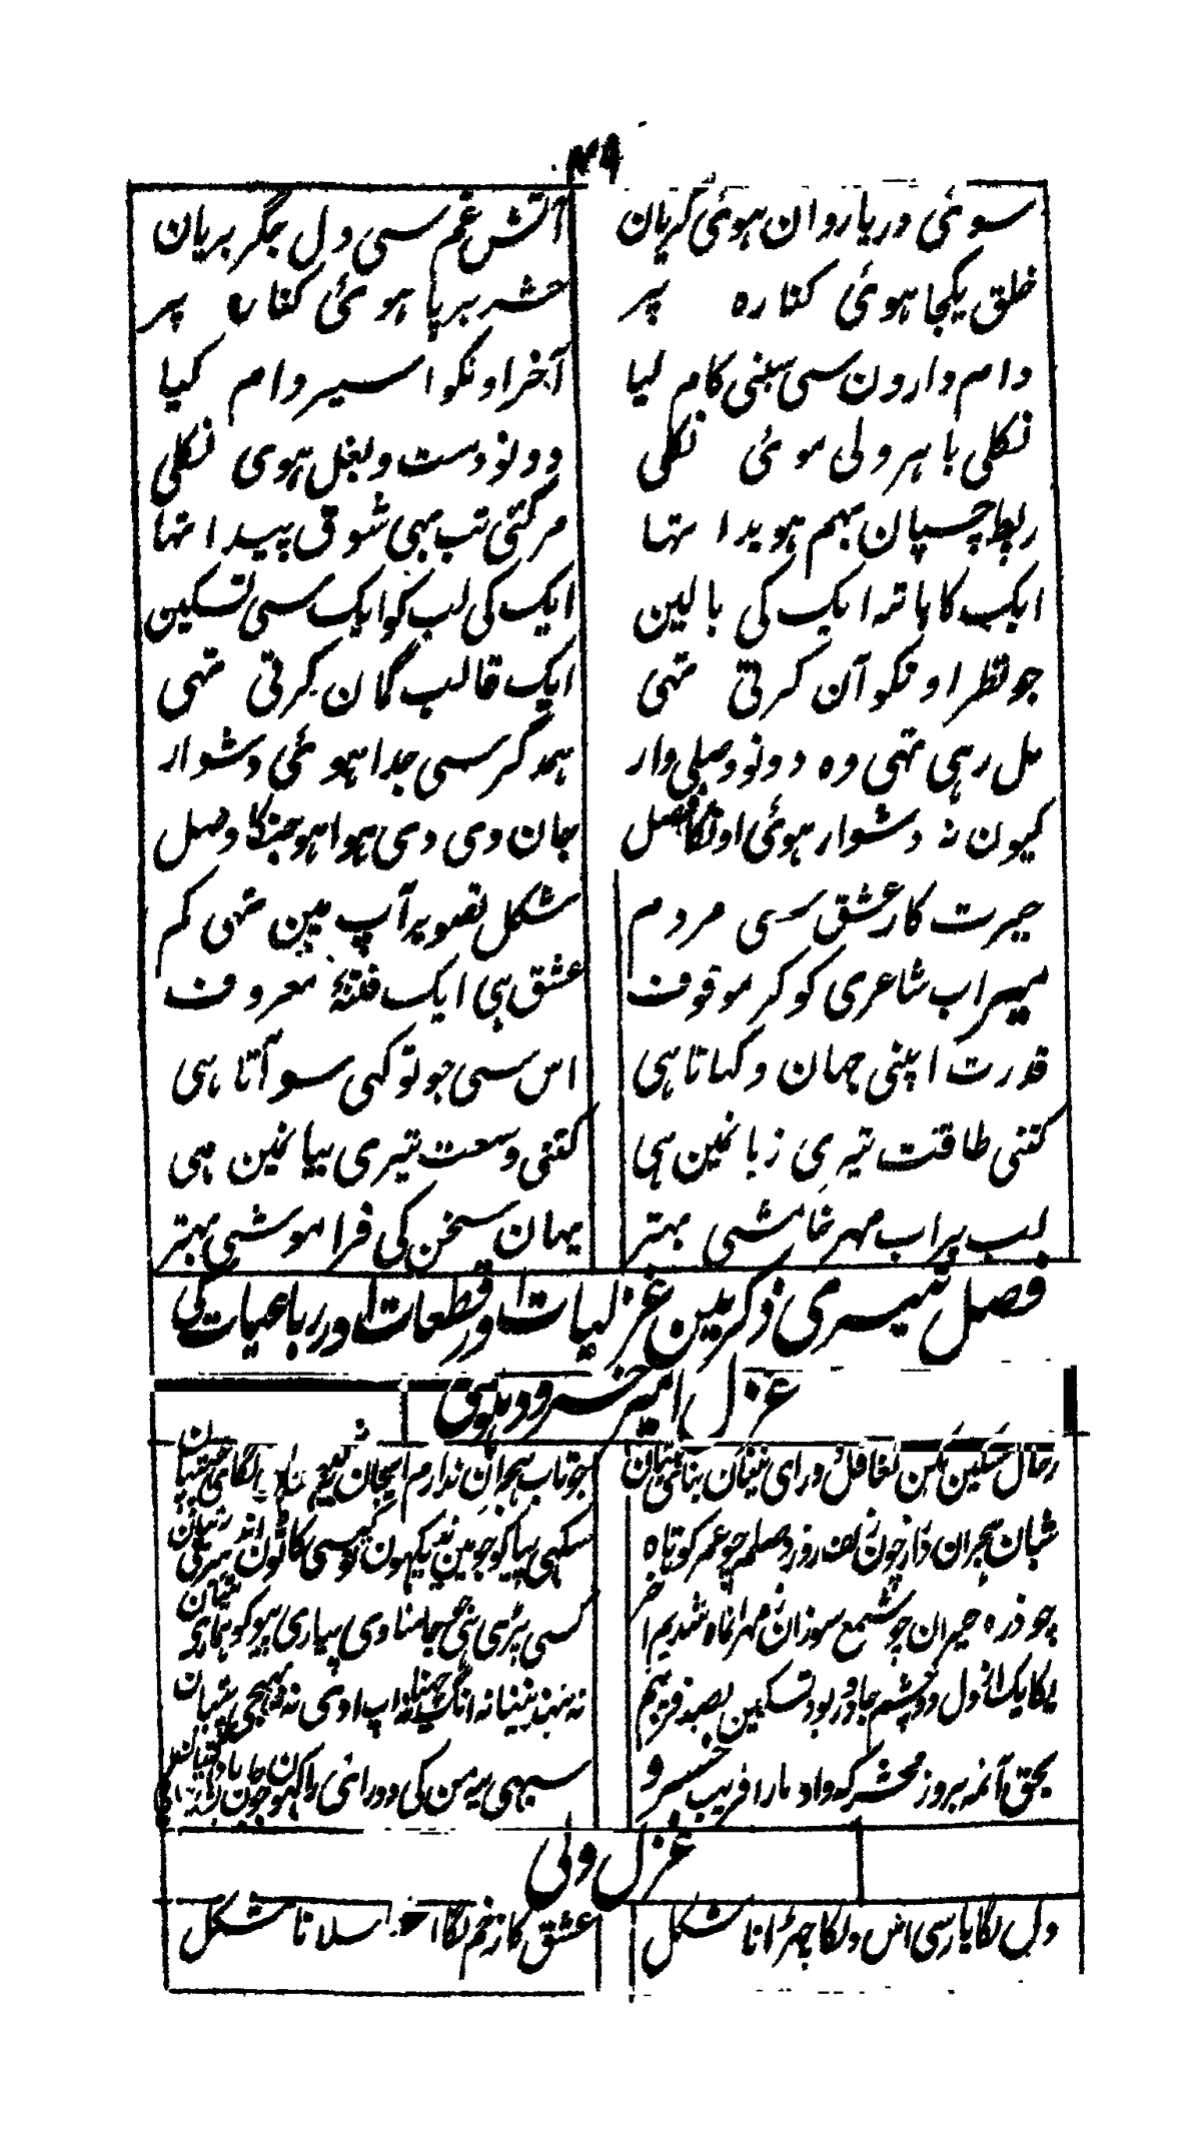 ۴۹
سوئی دریا روان ہوئی گریان آتش غم سی دل جگر بریان
خلق یکجا ہوئی کنارہ پر حشر برپا ہوئی کنارہ پر
دام دارون سی سبنی کام لیا آخر اونکو اسیر دام کیا
نکلی باہر ولی موئی نکلی دونو دست وبغل ہوی نکلی
ربط چسپان بہم ہویدا تہا مرگئی تب بہی شوق پیدا تہا
ایک کا ہاتہ ایک کی بالین ایک کی لب کو ایک سی تسکین
جو نظر اونکو آن کرتی تہی ایک قالب گمان کرتی تہی
مل رہی تہی وہ دونو وصلی وار ہمدگر سی جدا ہوئی دشوار
کیون نہ دشوار ہوئی اونکا فصل جان دی دی ہوا ہو جنکا وصل
حیرت کار عشق سی مردم شکل تصویر آپ مین تہی گم
میر اب شاعری کو کر موقوف عشق ہی ایک فتنۂ معروف
قدرت اپنی جہان دکہاتا ہی اس سی جو تو کہی سو آتا ہی
کتنی طاقت تیری زبانمین ہی کتنی وسعت تیری بیانمین ہی
لب پر اب مہر خامشی بہتر یہان سخن کی فراموشی بہتر
فصل تیسری ذکر مین غزلیات اور قطعات اور رباعیات کی
غزل امیر خسرو دہلوی
زحال مسکین مکن تغافل ورای نینان بنائی بتیان جو تاب ہجران ندارم ایجان لگای چہتیان
شبان ہجران دراز چون زلف روز وصلم چو عمر کوتاہ سکہی پیا کو جو مین ندیکہون تو کیسی کاٹون اندہیری رتیان
چو شمع سوزان چو ذرہ حیران کسی پڑی ہی جا سناوی پیاری پیو کو ہماری بتیان
یکایک از دل دو چشم جادو ببرد تسکین بصد فریبم نہ نیند نینا نہ انگ چینا نہ آپ اوی نہ بہیجی پتیان
بحق آنمہ بروز محشر کہ داد مارا فریب خسرو سپہی من کی دورائی راکہو
غزل ولی
دل لگا یار سی اس دلکا چہڑانا مشکل عشق کا زخم لگا سلانا مشکل